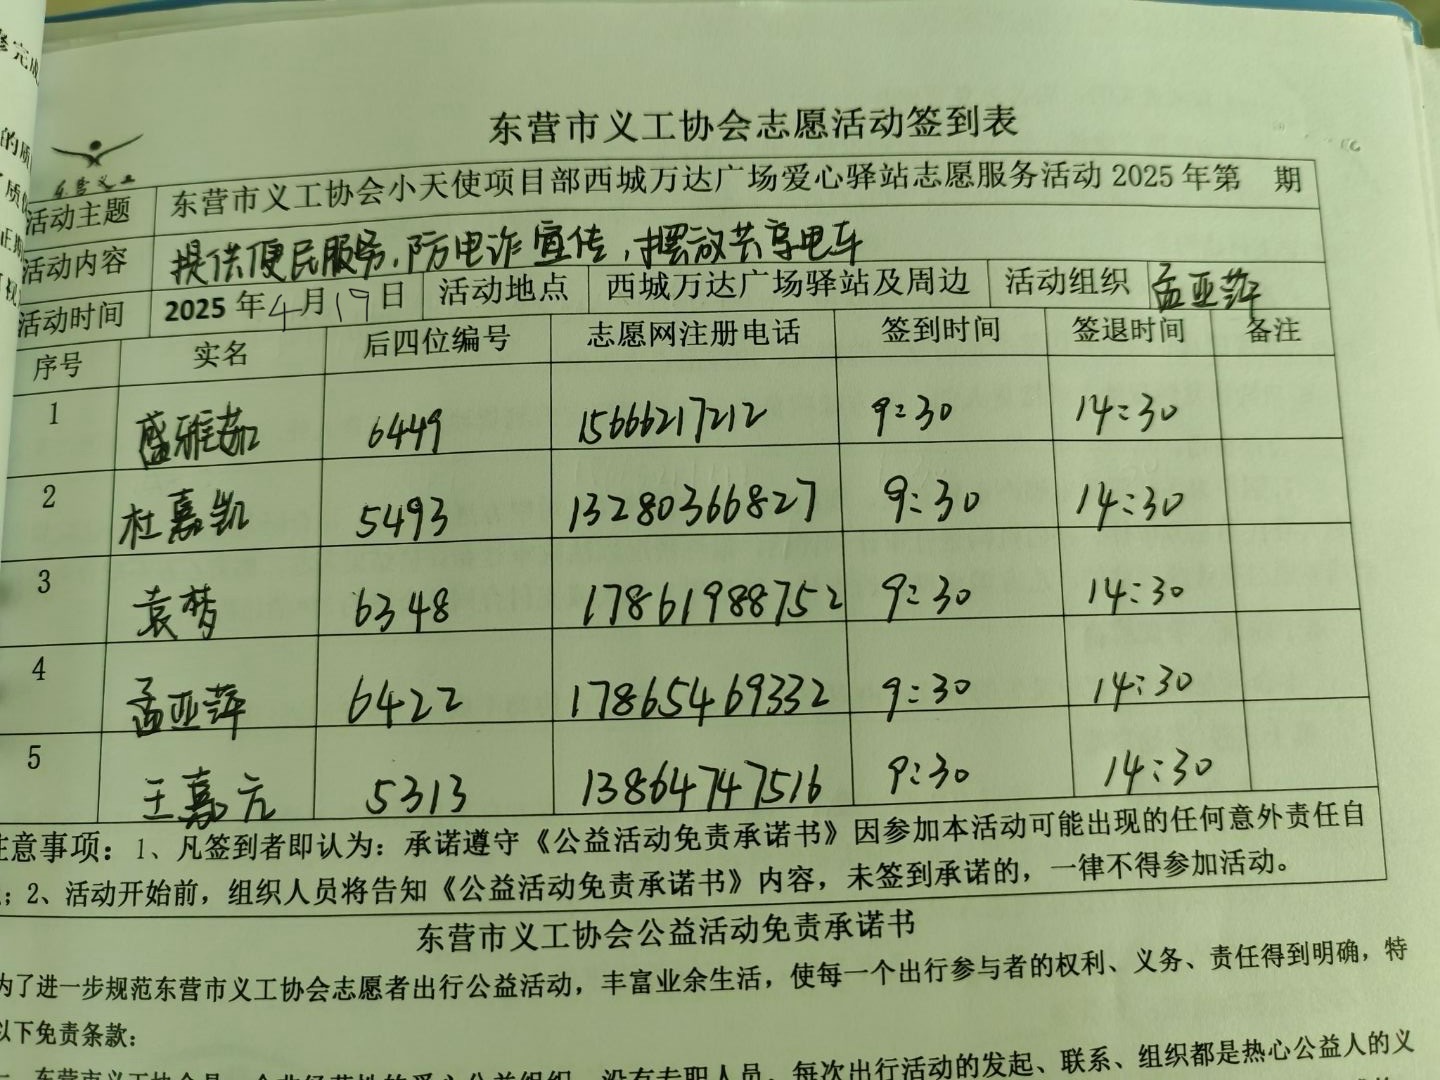 东营市义工协会志愿活动签到表
东营义工
活动主题 东营市义工协会小天使项目部西城万达广场爱心驿站志愿服务活动 2025 年第 期
活动内容 提供便民服务,防电诈宣传,摆放共享电车
活动时间 2025 年4月19日 活动地点 西城万达广场驿站及周边 活动组织 孟亚萍
序号 实名 后四位编号 志愿网注册电话 签到时间 签退时间 备注
1 盛雅茹 6449 15666217212 9:30 14:30
2 杜嘉凯 5493 13280366827 9:30 14:30
3 袁梦 6348 17861988752 9:30 14:30
4 孟亚萍 6422 17865469332 9:30 14:30
5 王嘉亢 5313 13864747516 9:30 14:30
注意事项:1、凡签到者即认为:承诺遵守《公益活动免责承诺书》因参加本活动可能出现的任何意外责任自
;2、活动开始前,组织人员将告知《公益活动免责承诺书》内容,未签到承诺的,一律不得参加活动。
东营市义工协会公益活动免责承诺书
为了进一步规范东营市义工协会志愿者出行公益活动,丰富业余生活,使每一个出行参与者的权利、义务、责任得到明确,特
以下免责条款:
一、东营市义工协会是一个非经营性的爱心公益组织,没有专职人员,每次出行活动的发起、联系、组织都是热心公益人的义